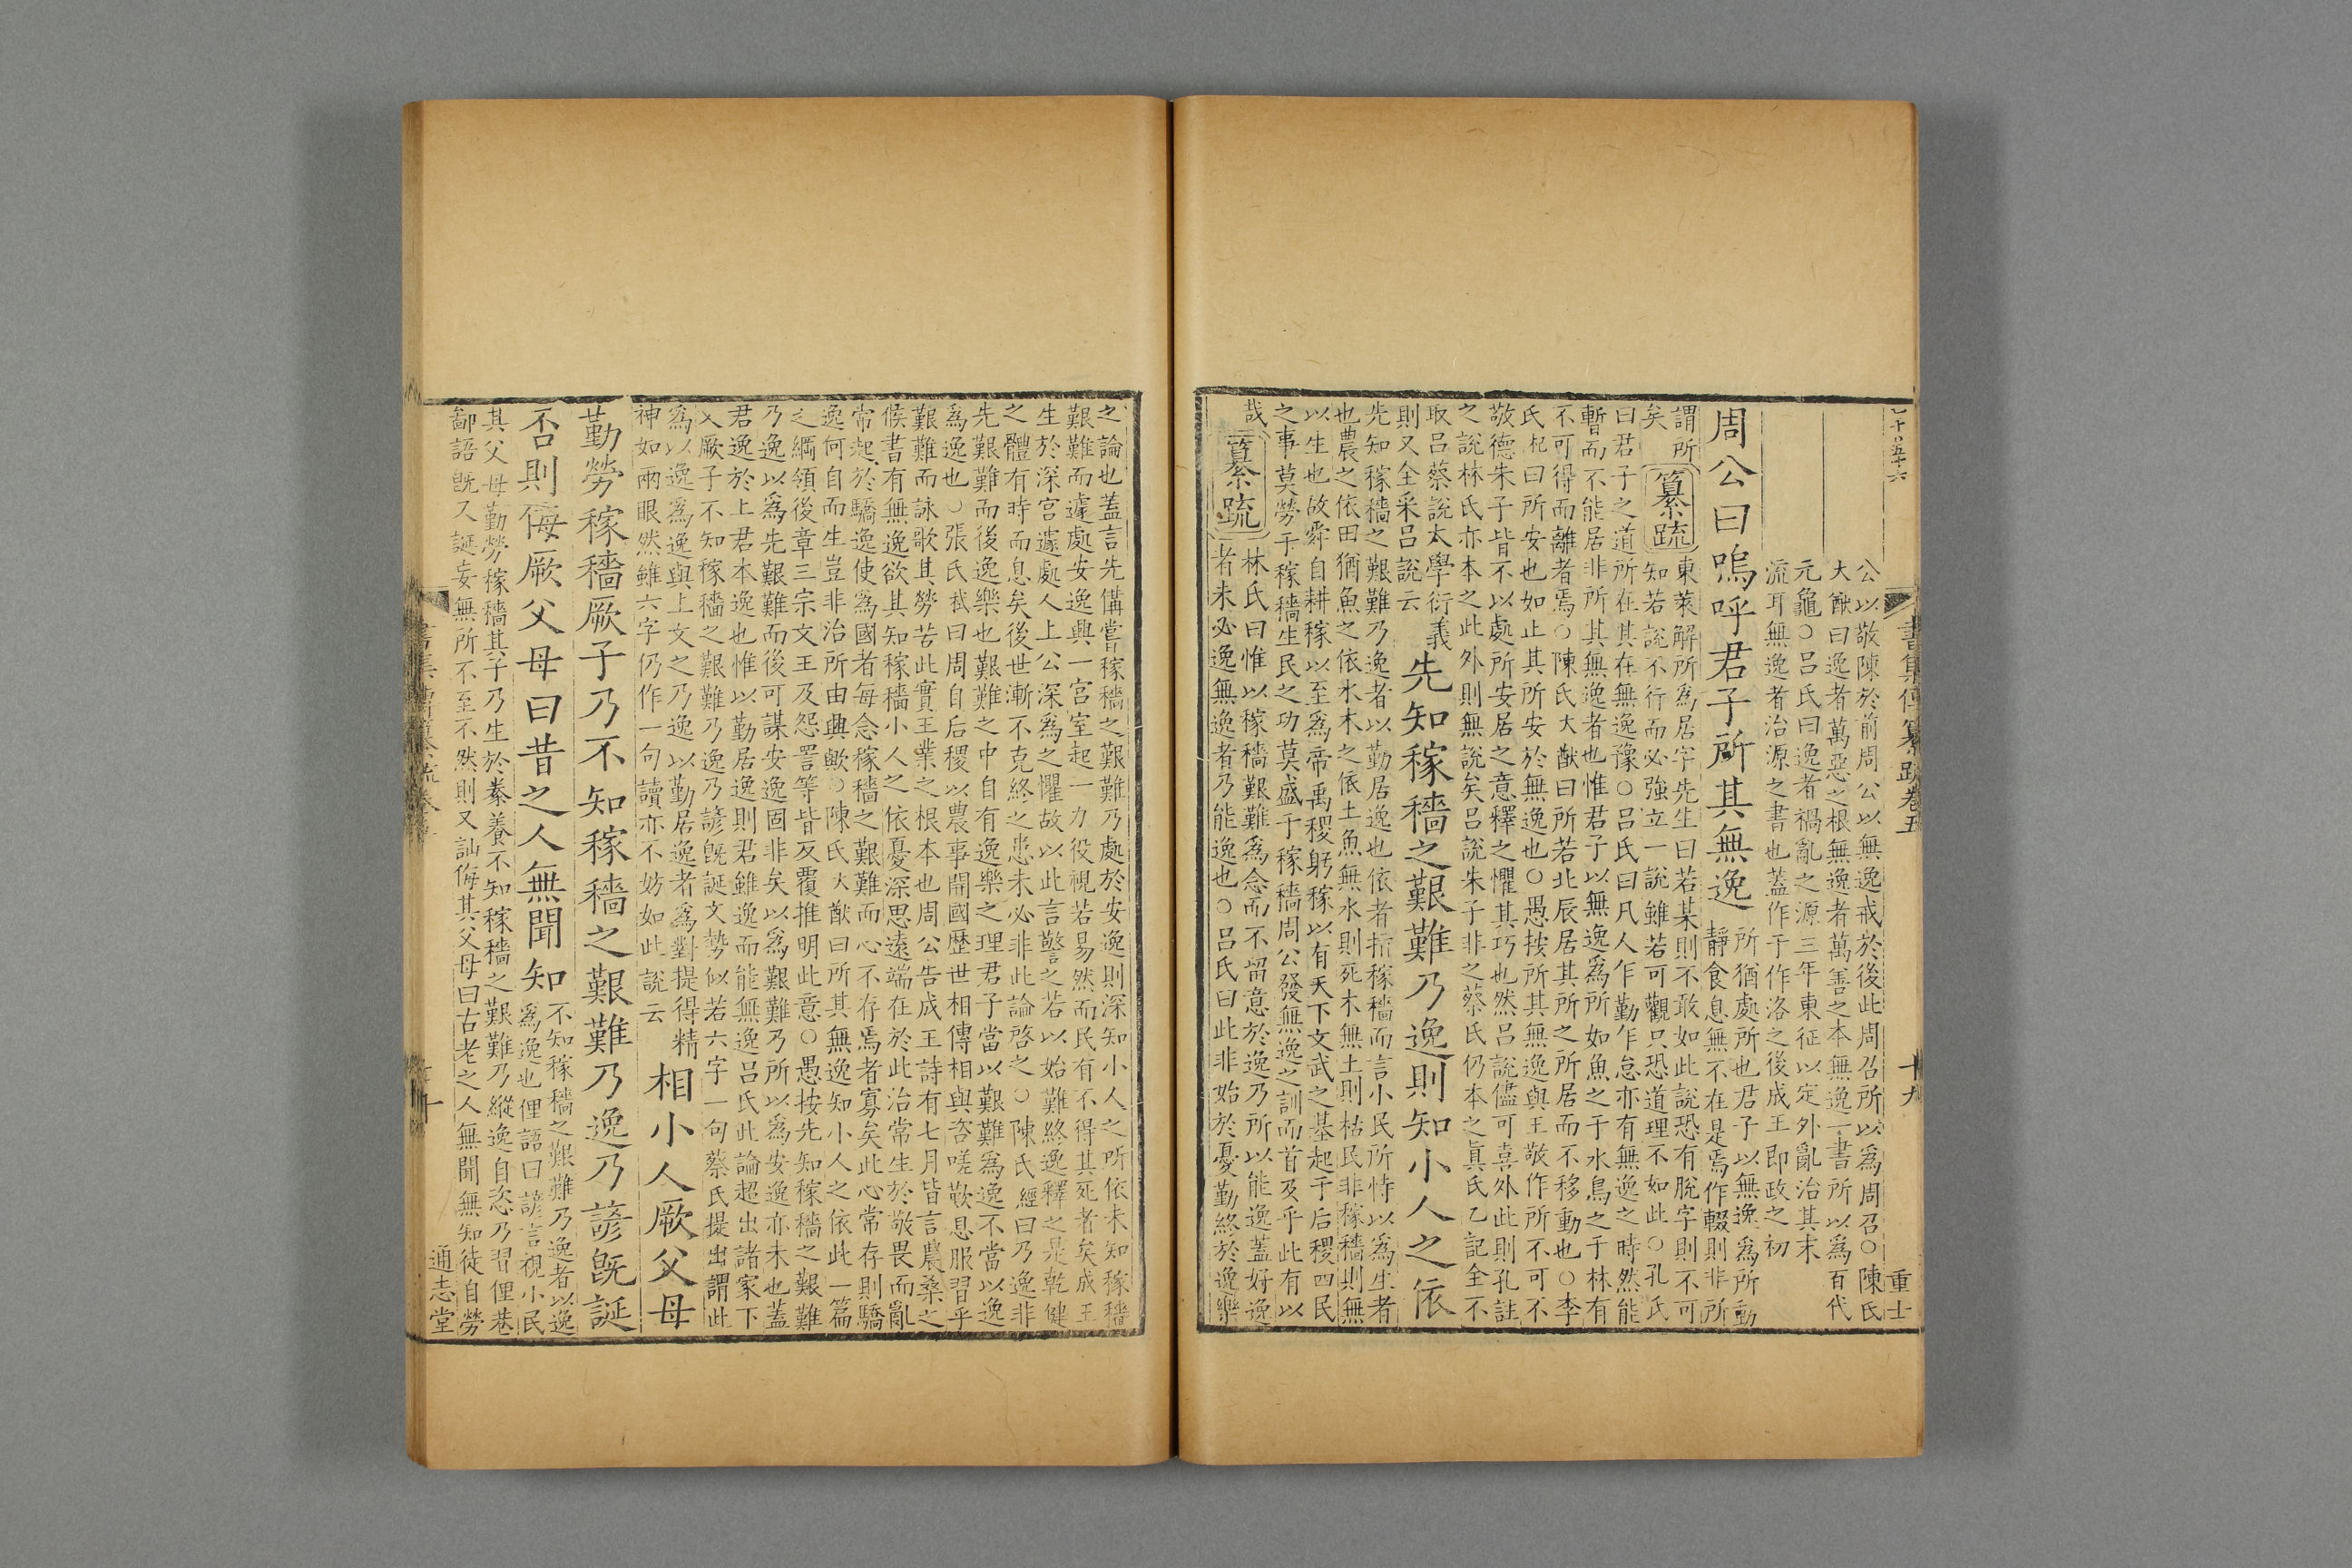 書集傳纂疏卷五　十九　重士
公以敬陳於前周公以無逸戒於後此周召所以爲周召○陳氏
大猷曰逸者萬惡之根無逸者萬善之本無逸一書所以爲百代
元龜○呂氏曰逸者禍亂之源三年東征以定外亂治其末
流耳無逸者治源之書也蓋作于作洛之後成王即政之初
周公曰嗚呼君子所其無逸
所猶處所也君子以無逸爲所動
靜食息無不在是焉作輟則非所
謂所
矣
纂疏
東萊解所爲居字先生曰若某則不敢如此說恐有脫字則不可
知若說不行而必強立一說雖若可觀只恐道理不如此○孔氏
曰君子之道所在其在無逸豫○呂氏曰凡人乍勤乍怠亦有無逸之時然能
暫而不能居非所其無逸者也惟君子以無逸爲所如魚之于水鳥之于林有
不可得而離者焉○陳氏大猷曰所若北辰居其所之所居而不移動也○李
氏杞曰所安也如止其所安於無逸也○愚按所其無逸與王敬作所不可不
敬德朱子皆不以處所安居之意釋之懼其巧也然呂說儘可喜外此則孔註
之說林氏亦本之此外則無說矣呂說朱子非之蔡氏仍本之眞氏乙記全不
取呂蔡說太學衍義
則又全采呂說云
先知稼穡之艱難乃逸則知小人之依
先知稼穡之艱難乃逸者以勤居逸也依者指稼穡而言小民所恃以爲生者
也農之依田猶魚之依水木之依土魚無水則死木無土則枯民非稼穡則無
以生也故舜自耕稼以至爲帝禹稷躬稼以有天下文武之基起于后稷四民
之事莫勞于稼穡生民之功莫盛于稼穡周公發無逸之訓而首及乎此有以
哉
纂疏
林氏曰惟以稼穡艱難爲念而不留意於逸乃所以能逸蓋好逸
者未必逸無逸者乃能逸也○呂氏曰此非始於憂勤終於逸樂
之論也蓋言先備嘗稼穡之艱難乃處於安逸則深知小人之所依未知稼穡
艱難而遽處安逸興一宮室起一力役視若易然而民有不得其死者矣成王
生於深宮遽處人上公深爲之懼故以此言警之若以始難終逸釋之是乾健
之體有時而息矣後世漸不克終之患未必非此論啓之○陳氏經曰乃逸非
先艱難而後逸樂也艱難之中自有逸樂之理君子當以艱難爲逸不當以逸
爲逸也○張氏栻曰周自后稷以農事開國歷世相傳相與咨嗟歎息服習乎
艱難而詠歌其勞苦此實王業之根本也周公告成王詩有七月皆言農桑之
候書有無逸欲其知稼穡小人之依憂深思遠端在於此治常生於敬畏而亂
常起於驕逸使爲國者每念稼穡之艱難而心不存焉者寡矣此心常存則驕
逸何自而生豈非治所由興歟○陳氏大猷曰所其無逸知小人之依此一篇
之綱領後章三宗文王及怨詈等皆反覆推明此意○愚按先知稼穡之艱難
乃逸以爲先艱難而後可謀安逸固非矣以爲艱難乃所以爲安逸亦未也蓋
君逸於上君本逸也惟以勤居逸則君雖逸而能無逸呂氏此論超出諸家下
文厥子不知稼穡之艱難乃逸乃諺旣誕文勢似若六字一句蔡氏提出謂此
爲以逸爲逸與上文之乃逸以勤居逸者爲對提得精
神如兩眼然雖六字仍作一句讀亦不妨如此說云
相小人厥父母
勤勞稼穡厥子乃不知稼穡之艱難乃逸乃諺旣誕
否則侮厥父母曰昔之人無聞知
不知稼穡之艱難乃逸者以逸
爲逸也俚語曰諺言視小民
其父母勤勞稼穡其子乃生於豢養不知稼穡之艱難乃縱逸自恣乃習俚巷
鄙語旣又誕妄無所不至不然則又訕侮其父母曰古老之人無聞無知徒自勞
通志堂